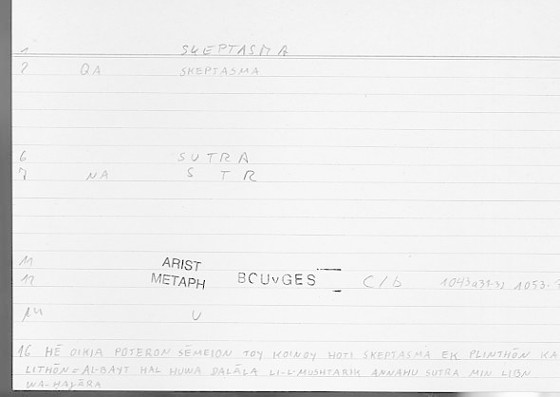 1 SKEPTASMA
2 QA SKEPTASMA
6 SUTRA
7 NA S T R
11 ARIST
12 METAPH BOUvGES C/b 1043a31-32 1053.
14 U
16 HĒ OIKIA POTERON SĒMEION TOY KOINOY HOTI SKEPTASMA EK PLINTHŌN KA
LITHŌN = AL-BAYT HAL HUWA DALĀLA LI-L-MUSHTARIK ANNAHU SUTRA MIN LIBN
WA-ḤAJĀRA